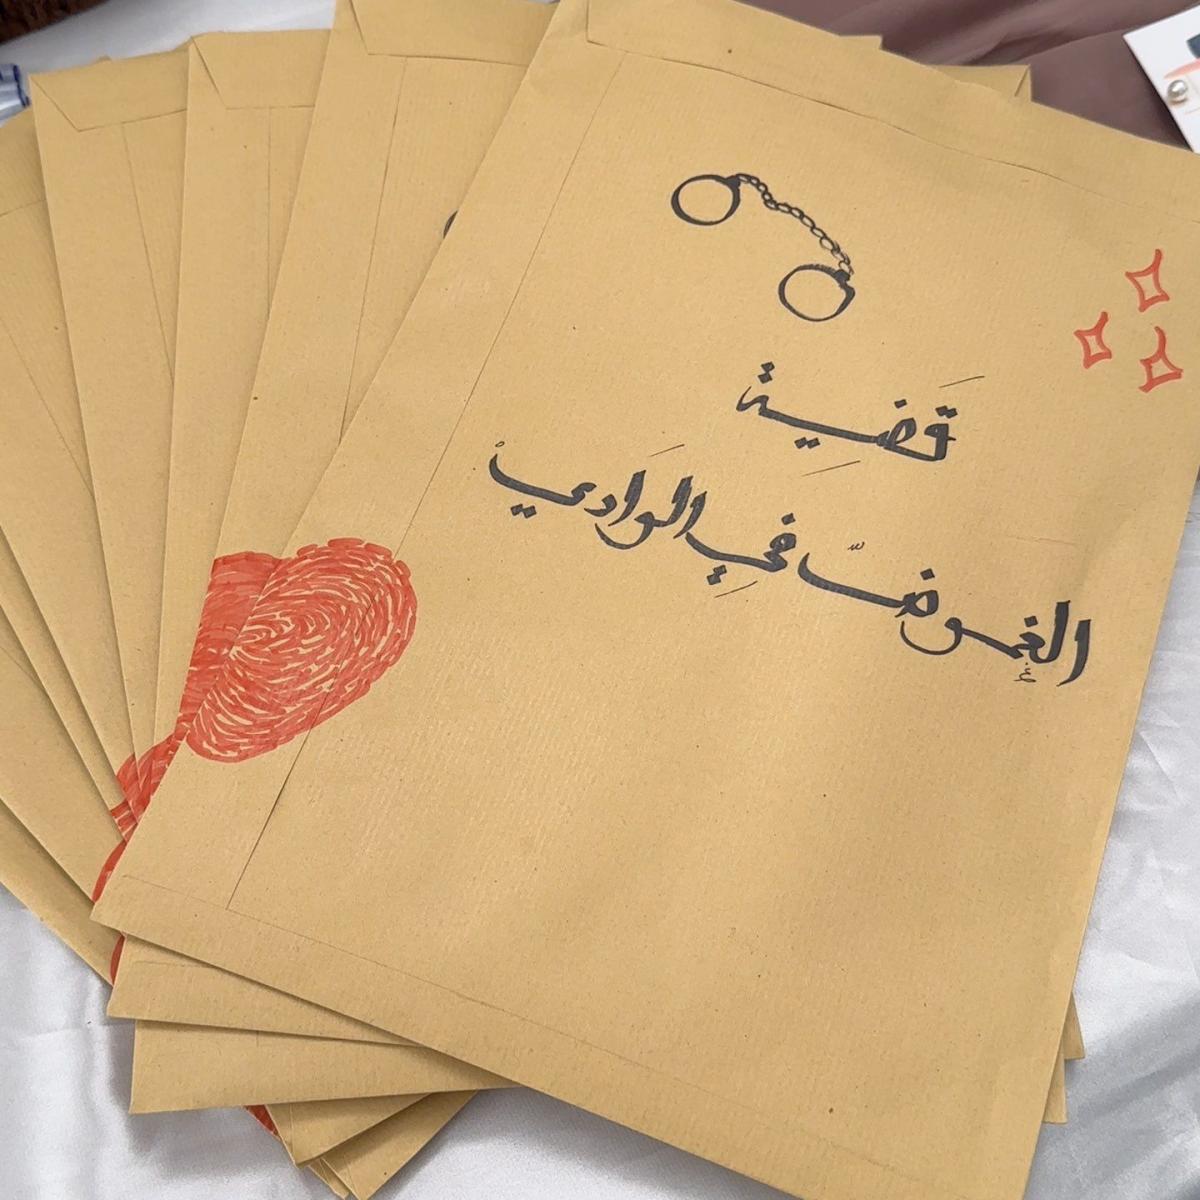 قَضِيَة
الغموض في الوادي